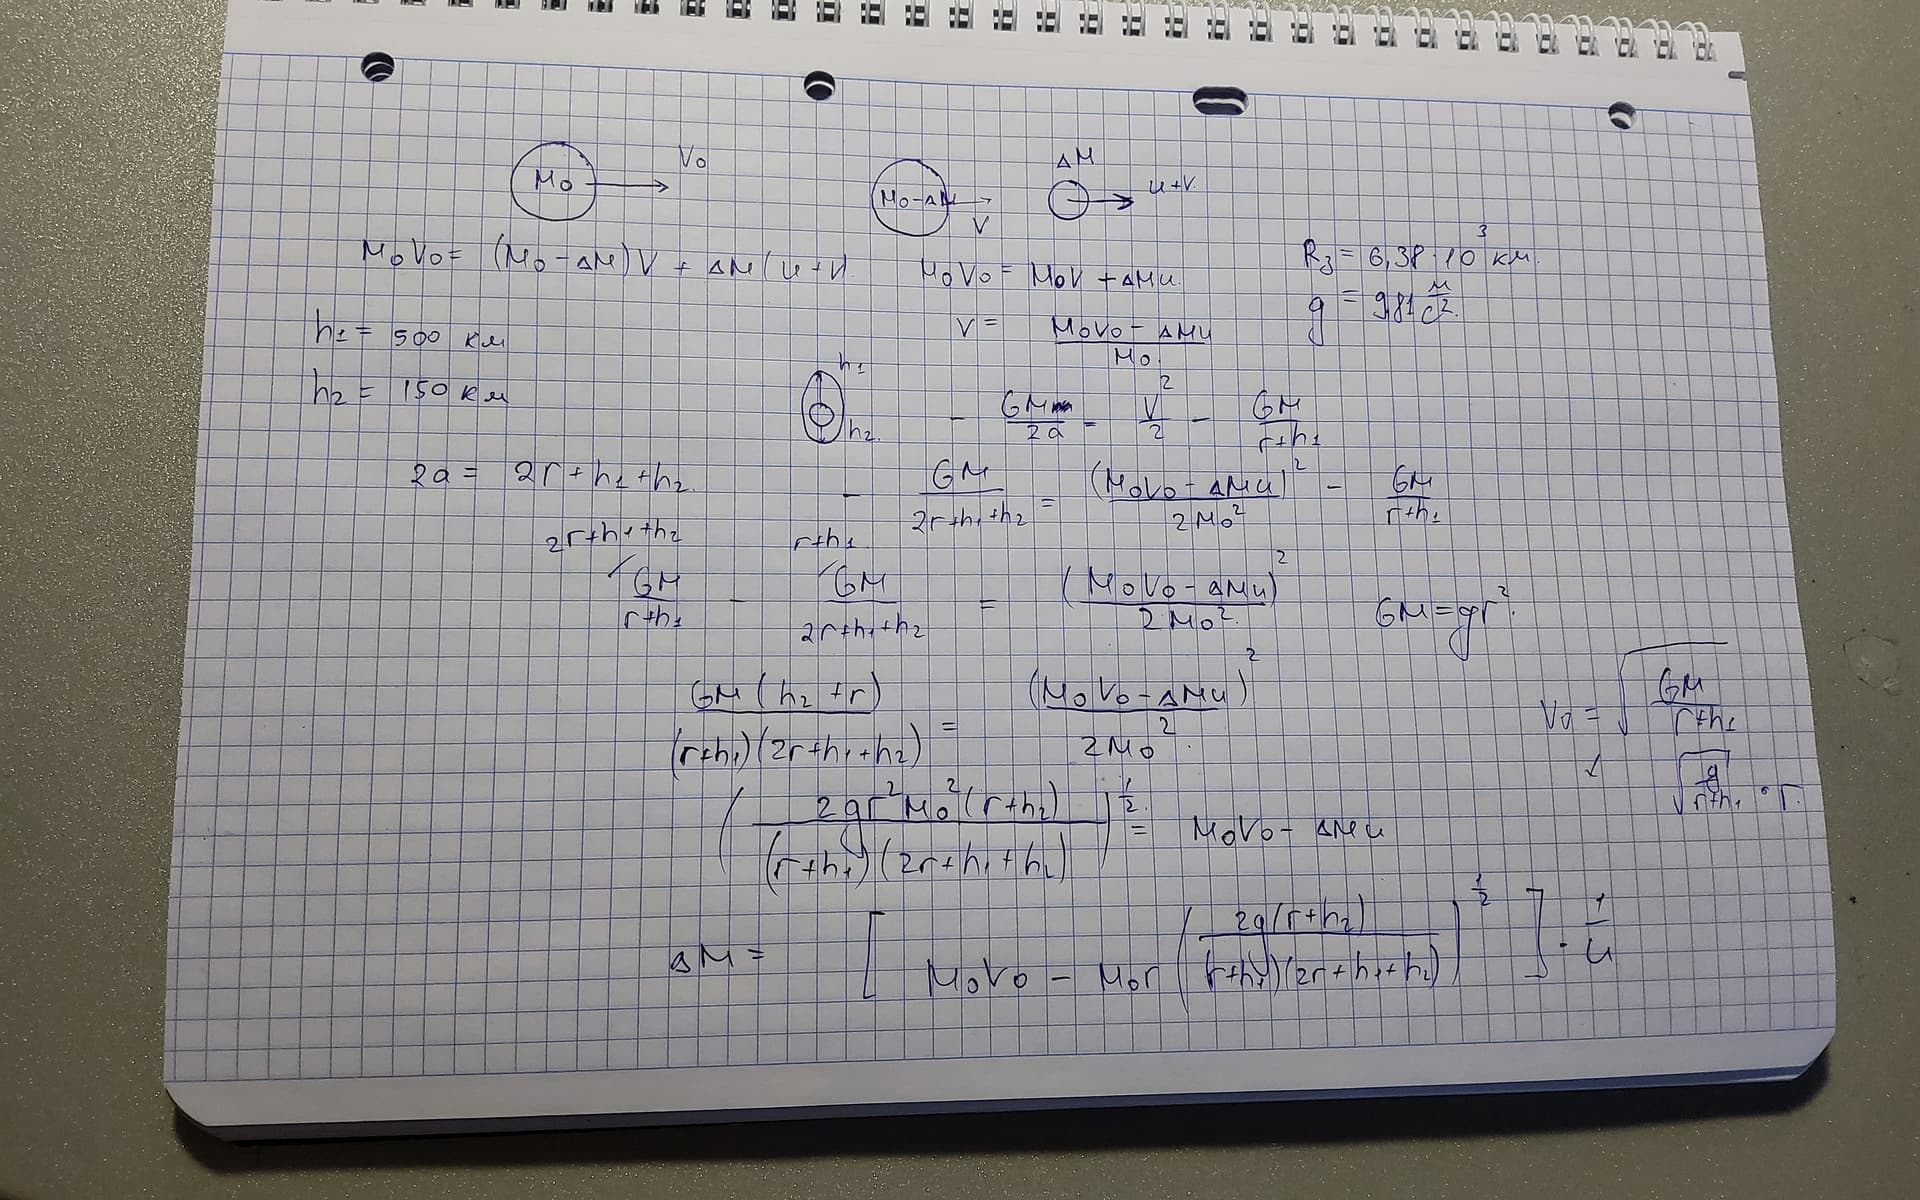 M₀ V₀ M₀-ΔM V ΔM u+V
M₀V₀ = (M₀-ΔM)V + ΔM(u+V) M₀V₀ = M₀V + ΔMu. Rз = 6,38·10³ км.
g = 9,81 м/с².
h₁ = 500 км V = (M₀V₀-ΔMu)/M₀.
h₂ = 150 км h₁ h₂. - GM/2a = V²/2 - GM/(r+h₁)
2a = 2r+h₁+h₂. - GM/(2r+h₁+h₂) = (M₀V₀-ΔMu)²/2M₀² - GM/(r+h₁)
2r+h₁+h₂ r+h₁
GM/(r+h₁) - GM/(2r+h₁+h₂) = (M₀V₀-ΔMu)²/2M₀². GM=gr².
GM(h₂+r)/((r+h₁)(2r+h₁+h₂)) = (M₀V₀-ΔMu)²/2M₀². V₀ = √(GM/(r+h₁))
√(g/(r+h₁))·r.
(2gr²M₀²(r+h₂)/((r+h₁)(2r+h₁+h₂)))^(1/2) = M₀V₀-ΔMu
ΔM = [M₀V₀ - M₀r(2g(r+h₂)/((r+h₁)(2r+h₁+h₂)))^(1/2)]·1/u